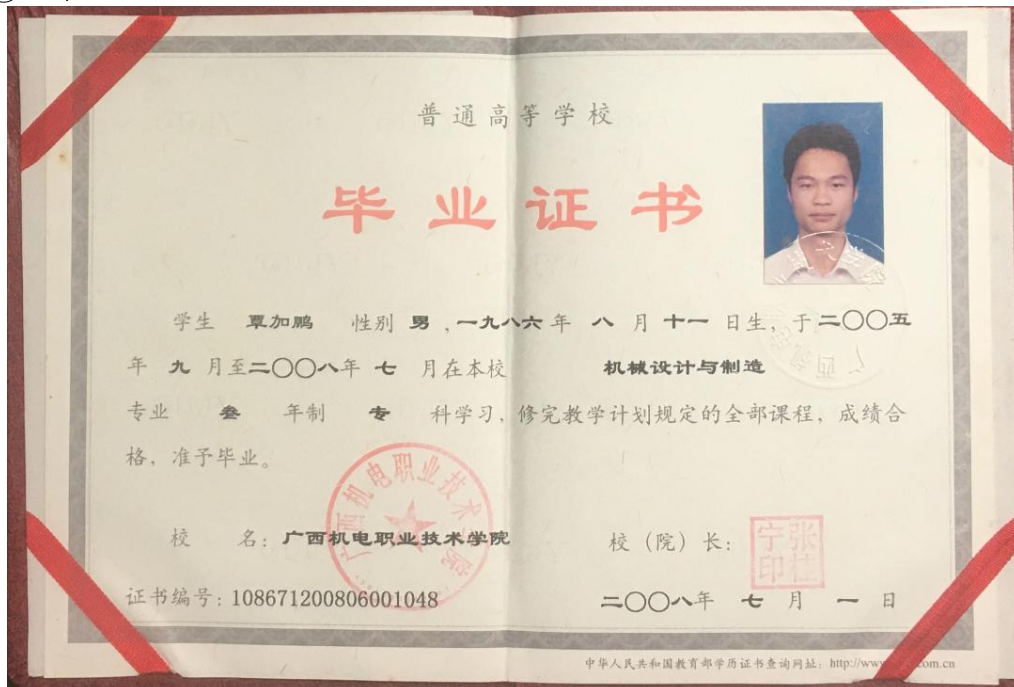 普通高等学校
毕业证书
学生 覃加鹏 性别 男,一九八六年 八 月 十一 日生,于二〇〇五
年 九 月至二〇〇八年 七 月在本校 机械设计与制造
专业 叁 年制 专 科学习,修完教学计划规定的全部课程,成绩合
格,准予毕业。
广西机电职业技术学院
校 名:广西机电职业技术学院 校(院)长:
证书编号:108671200806001048 二〇〇八年 七 月 一 日
中华人民共和国教育部学历证书查询网址:http://www. com.cn